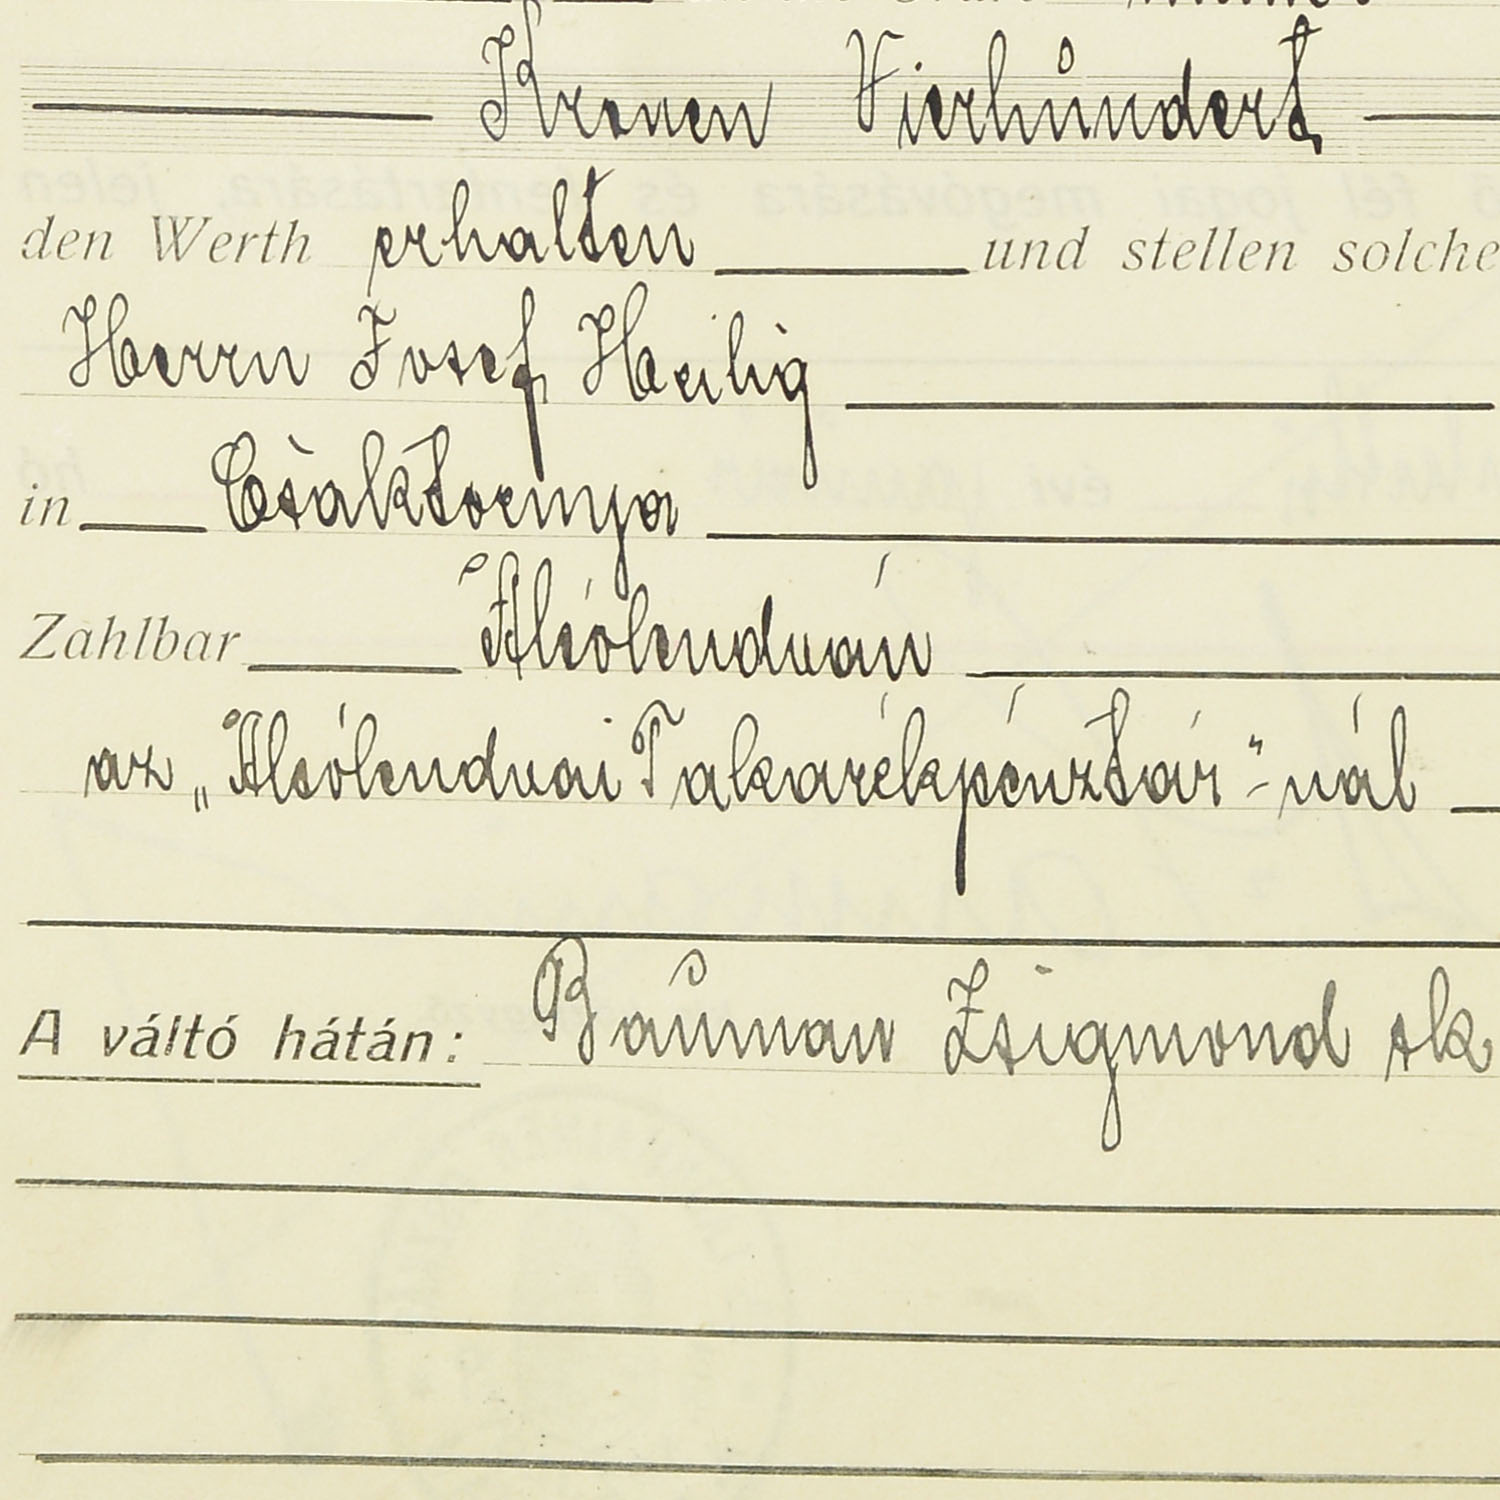 Kronen Vierhundert
den Werth erhalten und stellen solche
Herrn Josef Heilig
in Csáktornya
Zahlbar Alsólendván
az „Alsólendvai Takarékpénztár"-nál
A váltó hátán: Bauman Zsigmond sk